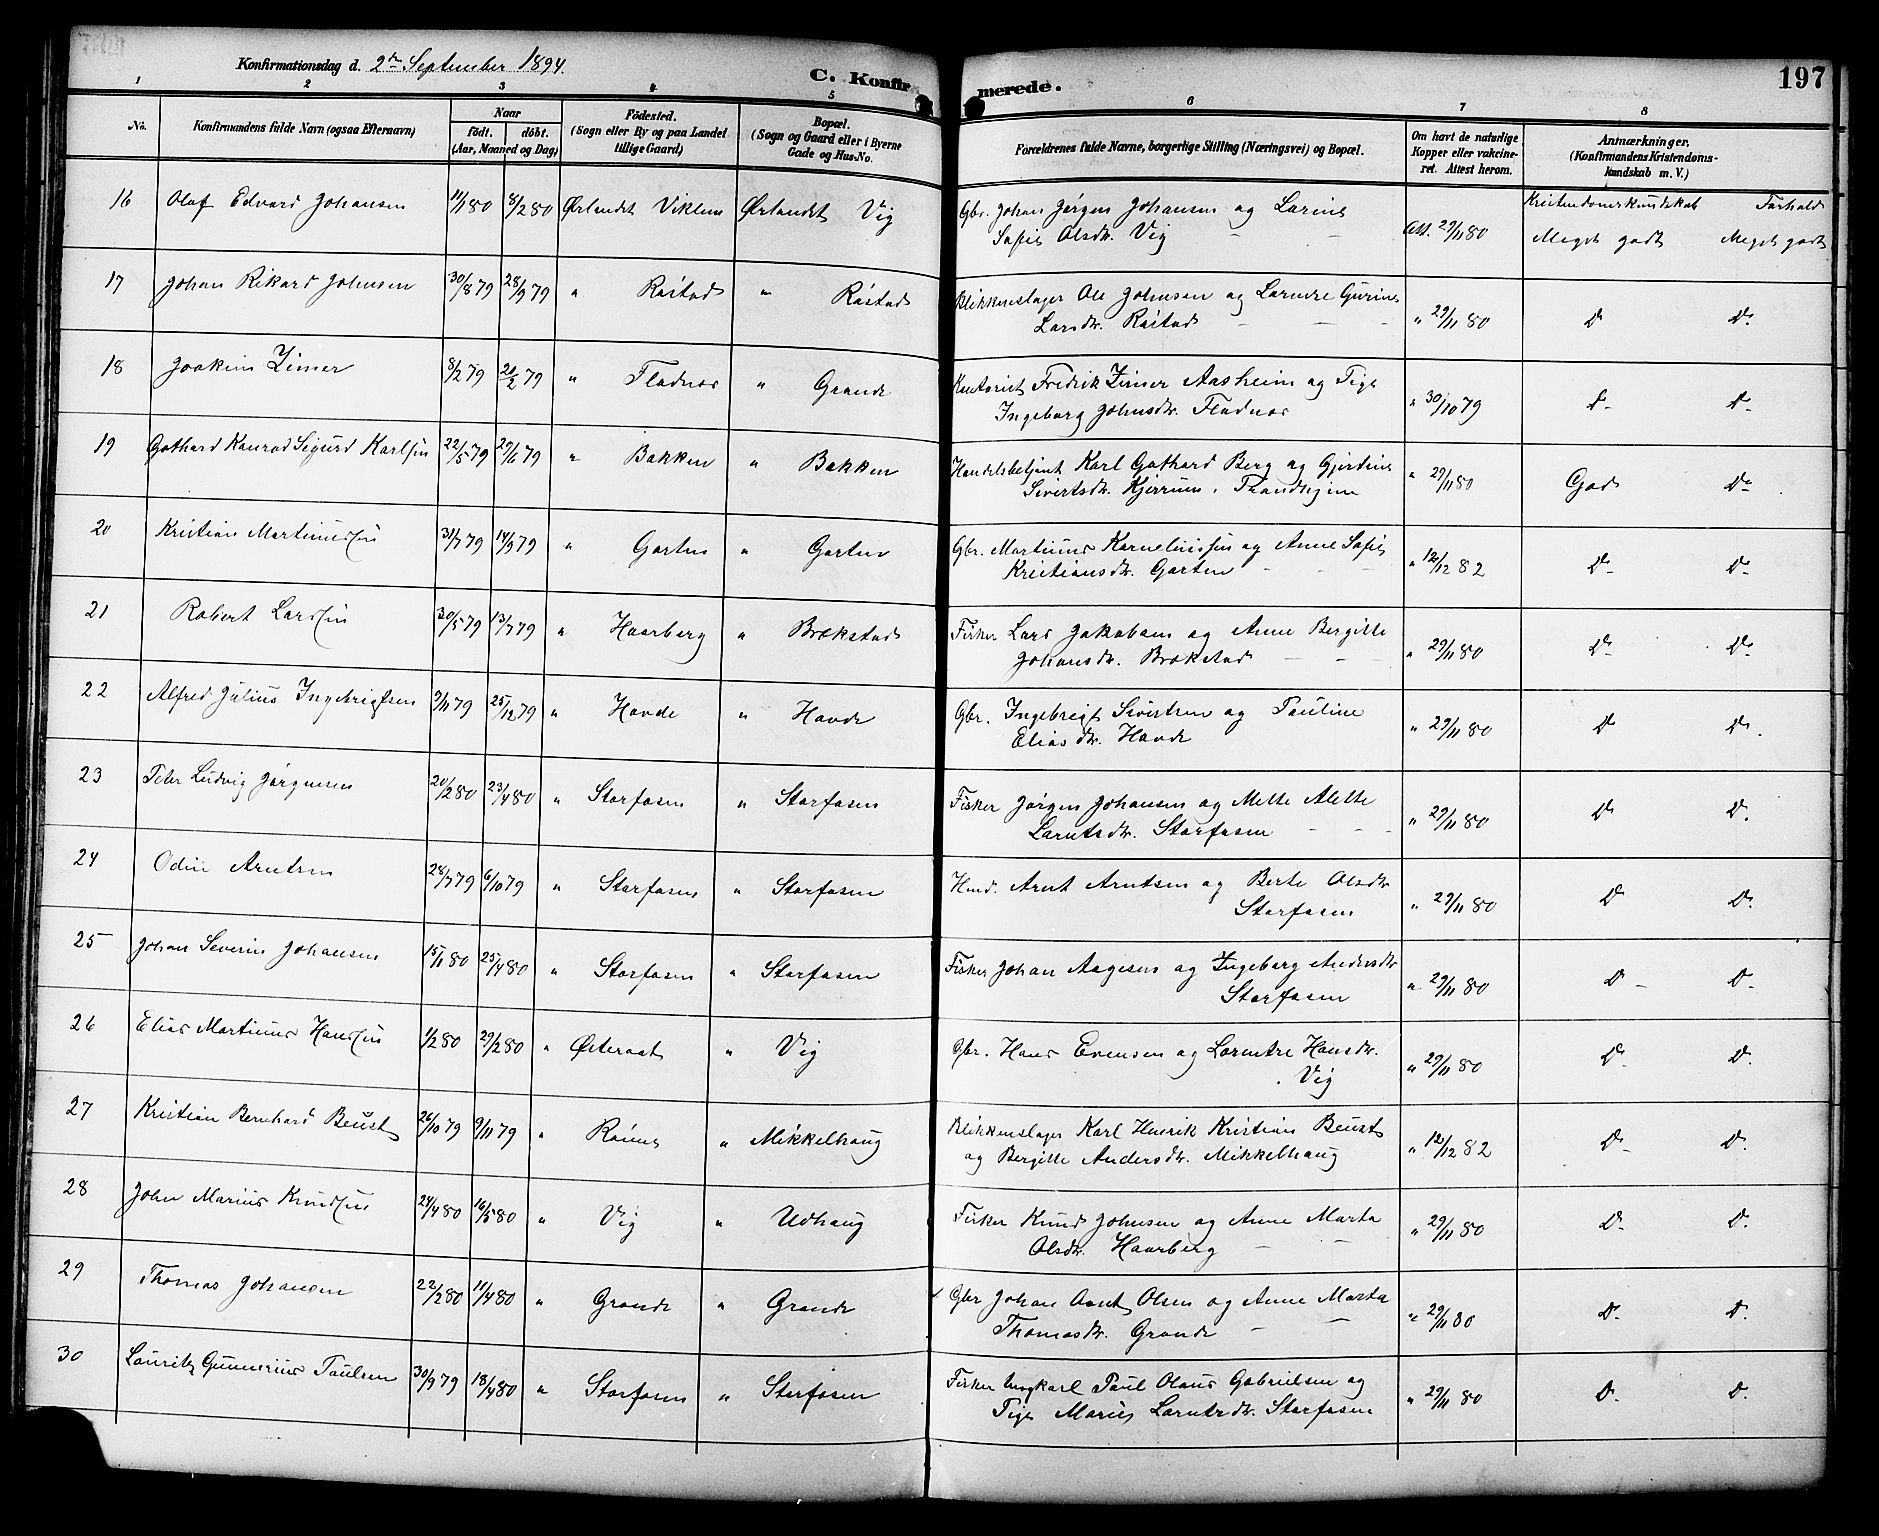 Konfirmationsdag d. 2den September 1894.
C. Konfirmerede.
197
1 2 3 4 5 6 7 8
No.
Konfirmandens fulde Navn (ogsaa Efternavn)
Naar
födt. döbt.
(Aar, Maaned og Dag)
Födested.
(Sogn eller By og paa Landet
tillige Gaard)
Bopæl.
(Sogn og Gaard eller i Byerne
Gade og Hus-No.
Forældrenes fulde Navne, borgerlige Stilling (Næringsvei) og Bopæl.
Om havt de naturlige
Kopper eller vakcine-
ret. Attest herom.
Anmærkninger.
(Konfirmandens Kristendoms-
kundskab m. V.)
16 Olaf Edvard Johansen 11/1 80 8/2 80 Ørlandet Viklem Ørlandet Vig Gbr. Johan Jørgen Johansen og Larine
Sofie Olsdtr. Vig Att. 29/11 80 Kristendomskundskab Forhold
Meget godt Meget godt
17 Johan Rikard Johnsen 30/8 79 28/9 79 " Røstad " Røstad Blikkenslager Ole Johnsen og Larntre Gurine
Larsdtr. Røstad " 29/11 80 Do Do
18 Joakim Zimer 8/2 79 21/2 79 " Fladnes " Grande Kontorist Fredrik Zimer Aasheim og
Ingeborg Johnsdtr. Fladnes " 30/10 79 Do Do
19 Gothard Konrad Sigurd Karlsen 22/5 79 29/6 79 " Bakken " Bakken Handelsbetjent Karl Gothard Berg og Gjertine
Sivertsdtr. Kjerrum, Trondhjem " 29/11 80 God Do
20 Kristian Martinussen 31/7 79 14/9 79 " Garten " Garten Gbr. Martinus Korneliussen og Anne Sofie
Kristiansdtr. Garten " 12/12 82 Do Do
21 Robert Larssen 30/5 79 13/7 79 " Haarberg " Brækstad Fisker Lars Jakobsen og Anne Bergitte
Johansdtr. Brækstad " 29/11 80 Do Do
22 Alfred Julius Ingebrigtsen 9/11 79 25/12 79 " Hovde " Hovde Gbr. Ingebrigt Sivertsen og Pauline
Eliasdtr. Hovde " 29/11 80 Do Do
23 Peter Ludvig Jørgensen 20/2 80 23/4 80 " Storfosen " Storfosen Fisker Jørgen Johansen og Mette Alette
Larntsdtr. Storfosen " 29/11 80 Do Do
24 Odin Arntsen 28/7 79 6/10 79 " Storfosen " Storfosen Hmd. Arnt Arntsen og Berte Olsdtr
Storfosen " 29/11 80 Do Do
25 Johan Severin Johansen 15/1 80 25/4 80 " Storfosen " Storfosen Fisker Johan Aagesen og Ingeborg Andersdtr
Storfosen " 29/11 80 Do Do
26 Elias Martinus Hanssen 1/2 80 29/2 80 " Østeraat " Vig Gbr. Hans Evensen og Larntre Hansdtr.
Vig " 29/11 80 Do Do
27 Kristian Bernhard Beust 26/10 79 9/11 79 " Rønne " Mikkelhaug Blikkenslager Karl Henrik Kristian Beust
og Bergitte Andersdtr. Mikkelhaug " 12/12 82 Do Do
28 John Marius Knudsen 24/4 80 16/5 80 " Vig " Udhaug Fisker Knud Johnsen og Anne Marta
Olsdtr. Haarberg " 29/11 80 Do Do
29 Thomas Johansen 22/2 80 11/4 80 " Grande " Grande Gbr Johan Arnt Olsen og Anne Marta
Thomasdtr. Grande " 29/11 80 Do Do
30 Lauritz Gunnerius Paulsen 30/9 79 18/4 80 " Storfosen " Storfosen Fisker Ungkarl Paul Olaus Gabrielsen og
Pige Marie Larntsdtr. Storfosen " 29/11 80 Do Do